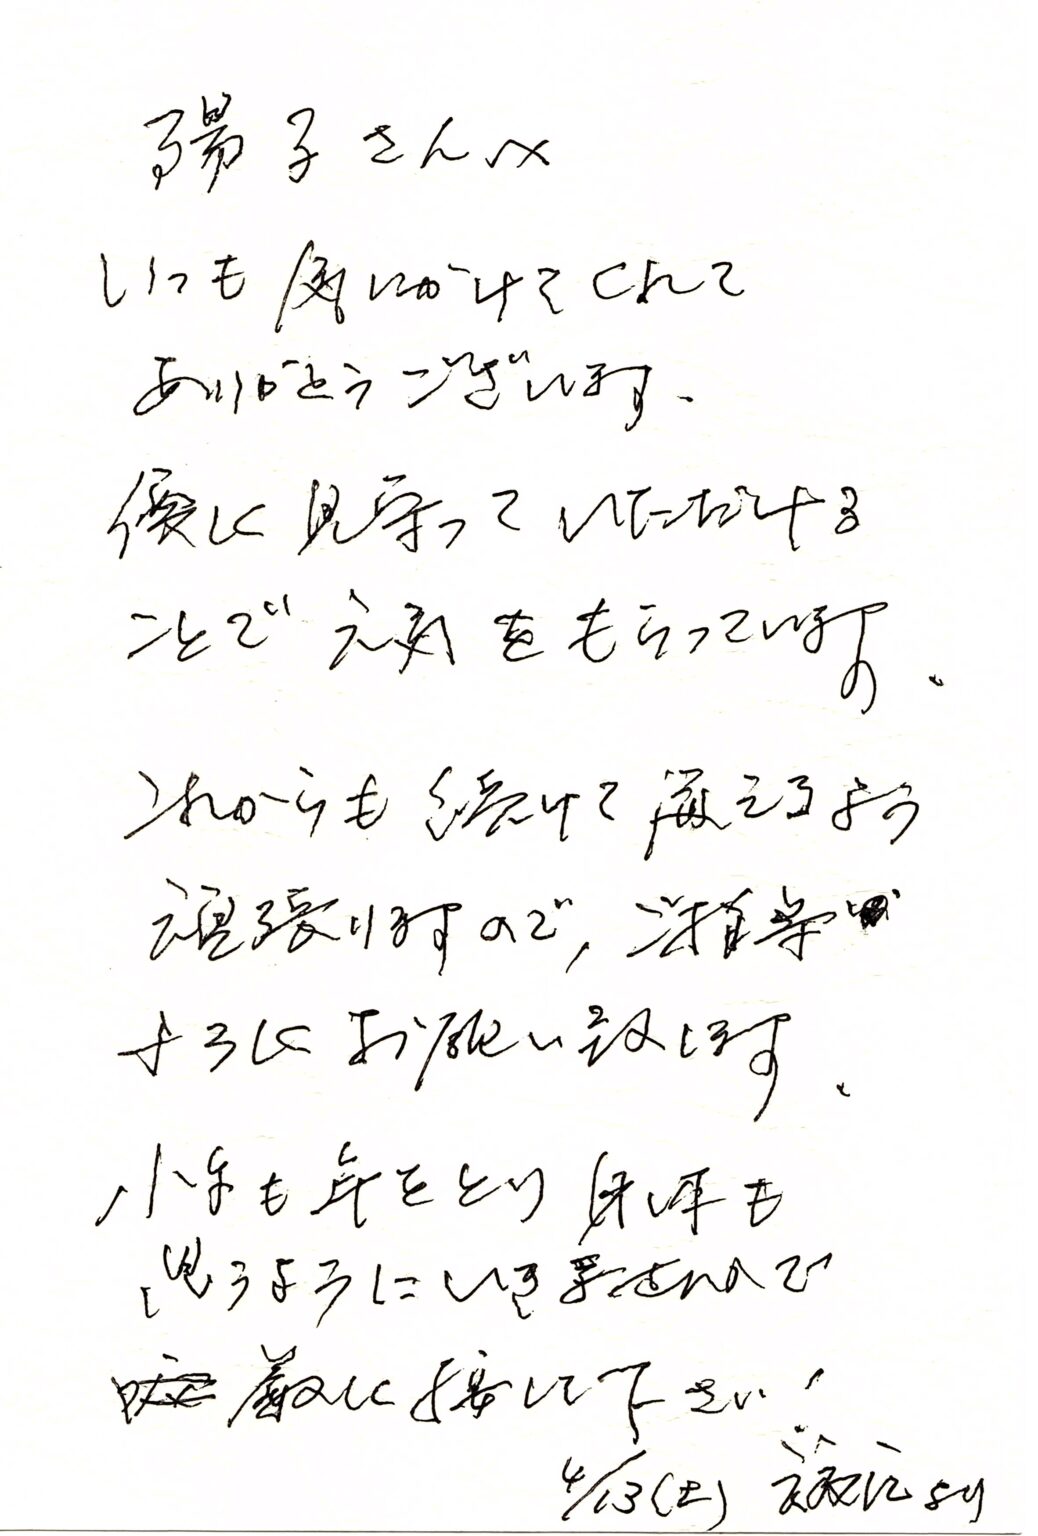 陽子さんへ
いつも気にかけてくれて
ありがとうございます。
優しく見守っていただける
ことで元気をもらっています。
これからも続けて えるよう
頑張りますので、ご指導
よろしくお願い致します。
小生も年をとり身体も
思うようにいきませんので
厳しく接して下さい!
4/13(土) より